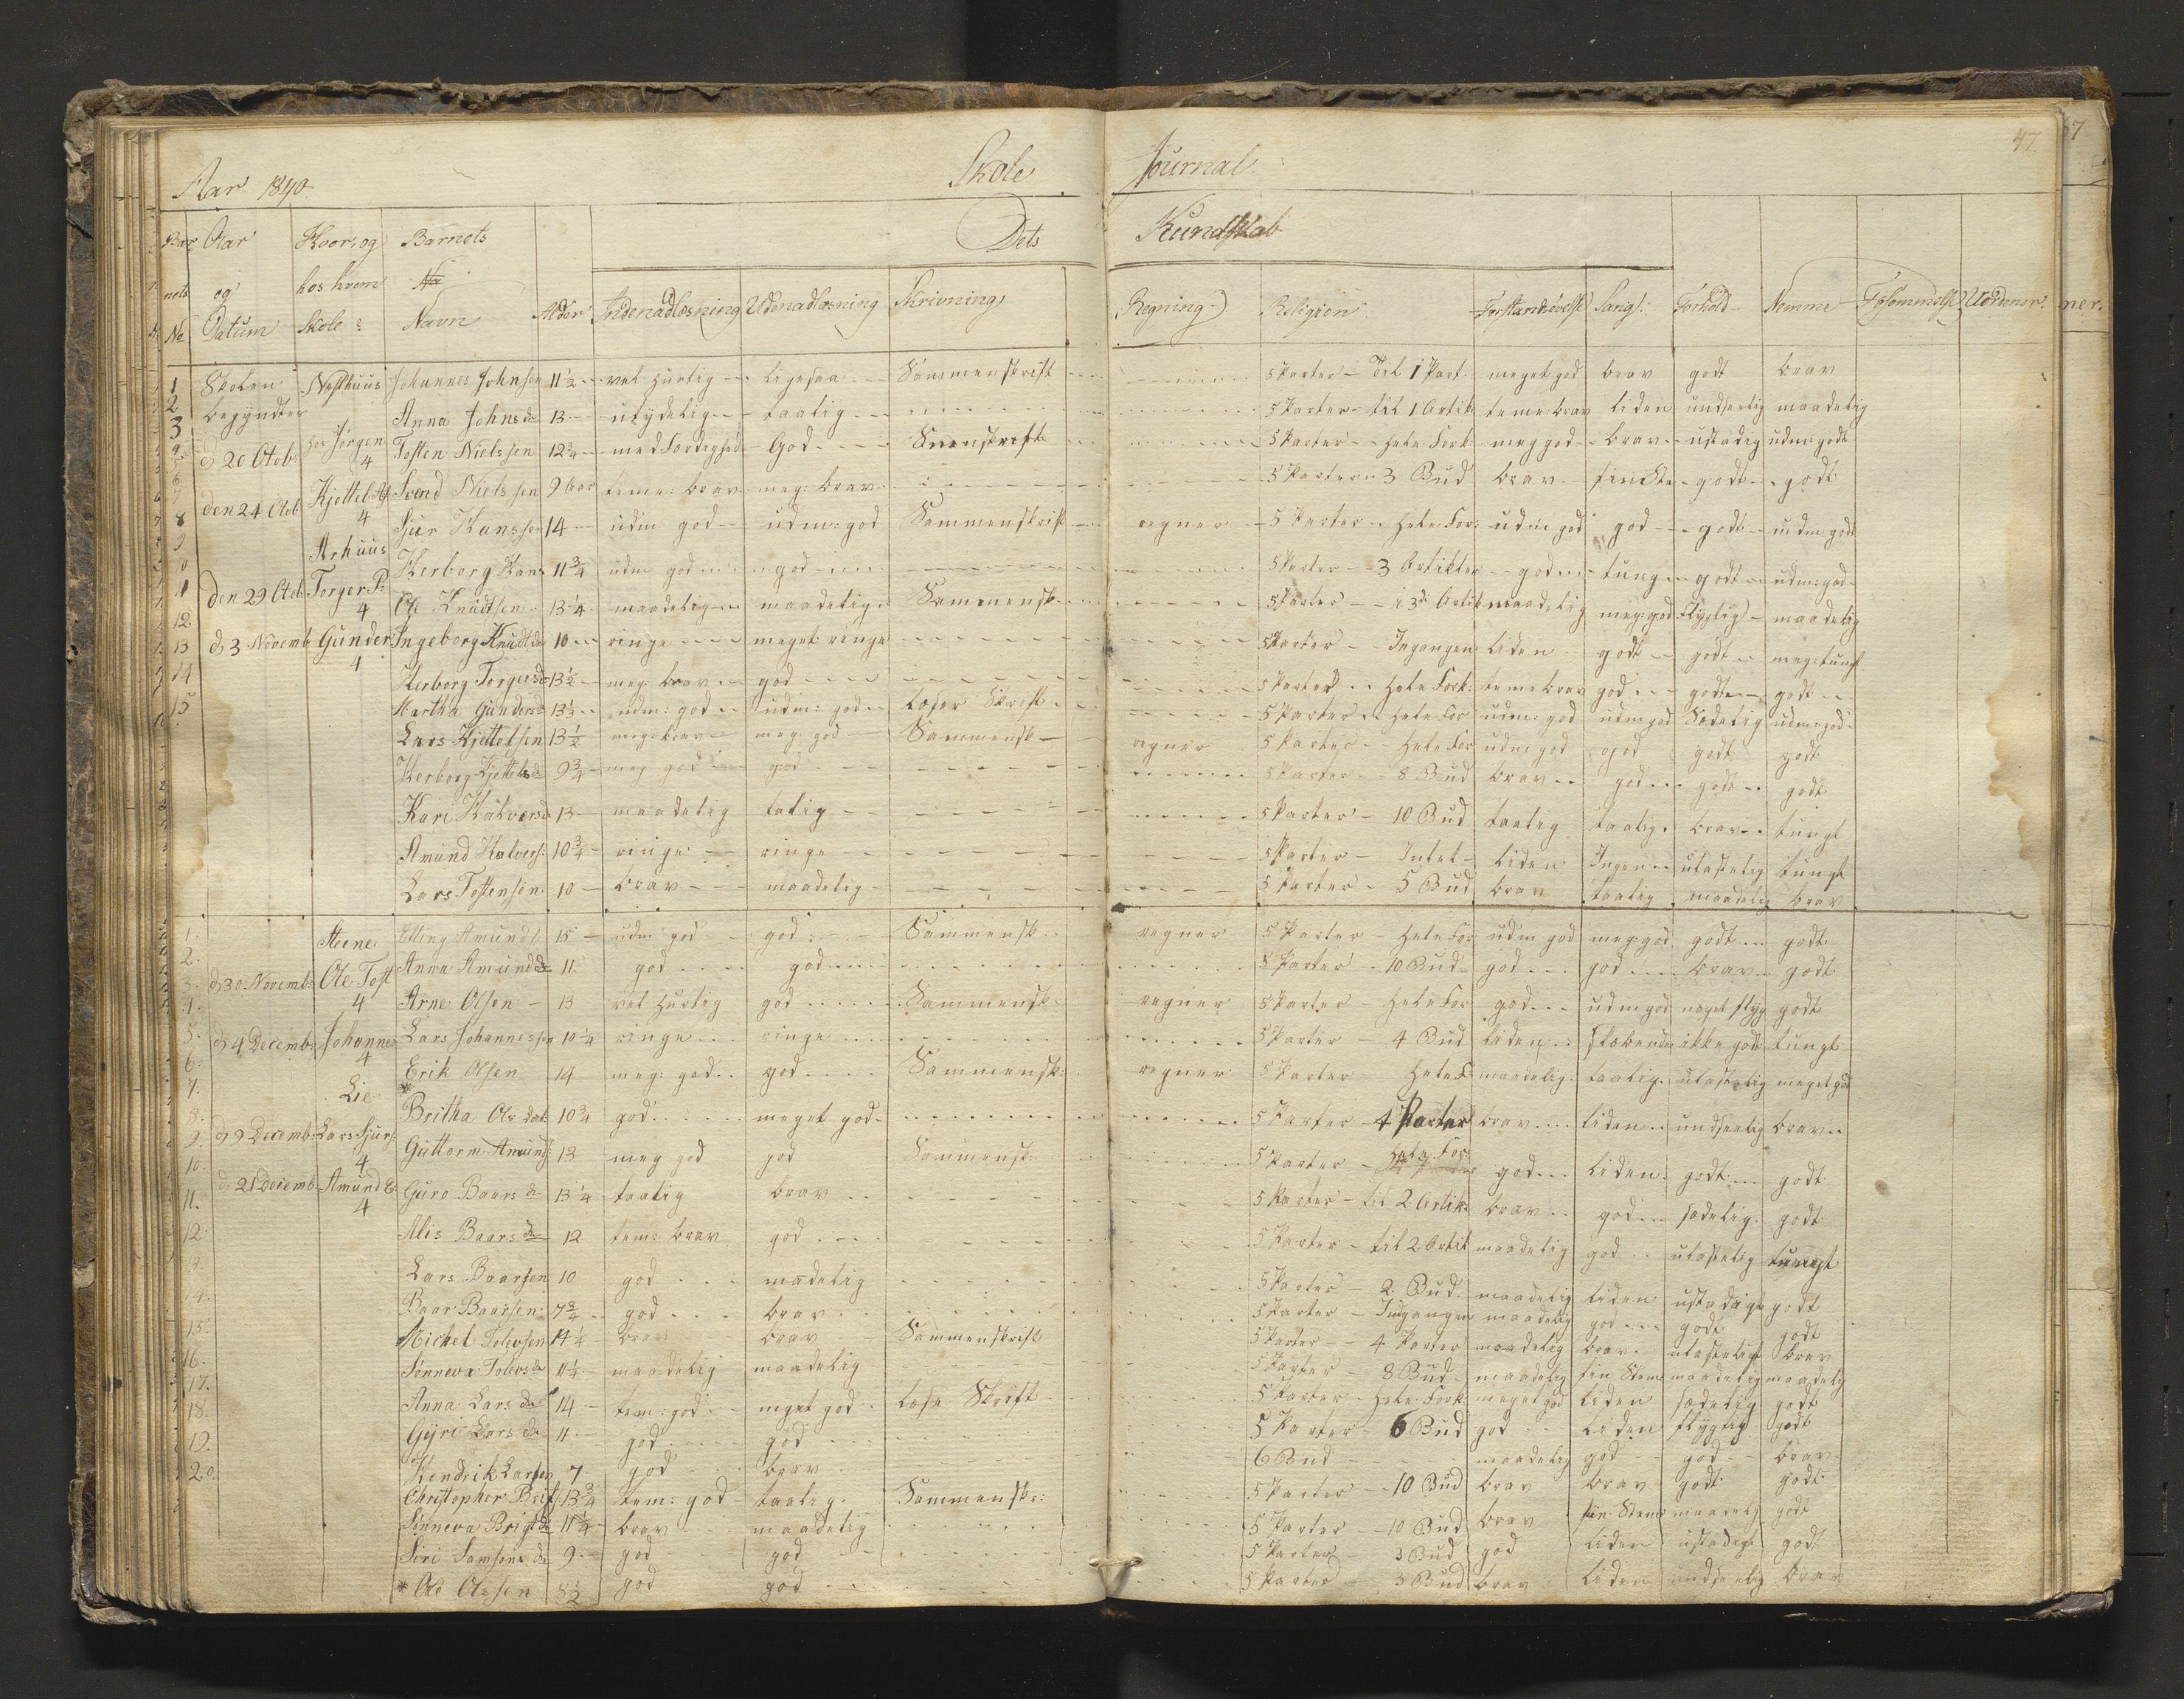 47
Aar 1840 Skole Journal.
Bar Aar Hvor, og Barnets Dets Kundskab
nets og hos hvem Na
No Datum Skole Navn Alder Indenadlæsning Udenadlæsning Skrivning Regning Religion Forstandsøvelse Sang Forhold Nemme Forsømmelse Uordener ner.
1 Skolen Nesthuus Johannes Johnsen 11½ vel hurtig ligesaa Sammenskrift 5 Parter Til 1 Part. meget god brav godt brav
2 begyndtes Anna Johns d 13 utydelig taalig 5 Parter til 1 Artik. teme: brav liden undseelig maadelig
3 d 20 Octob: hos Jørgen 4 Tosten Nielssen 12¾ med Færdighed God Snenskrift 5 Parter Hele Fork: meg god brav ustadig udm: godt
Svend Nielssen 9 Aar teme: brav meg: brav 5 Parter 3 Bud brav godt godt
den 24 Octob Kjettel 4 Sjur Hanssen 14 udm god udm: god Sammenskrift regner 5 Parter Hele For: udm god god godt udm godt
Arhuus Herborg Hans 11¾ udm god god 5 Parter 3 Artikler god tung godt udm: god
den 29 Octob Torger P: 4 Ole Knudtsen 13¼ maadelig maadelig Sammensk 5 Parter i 3de Artik maadelig meg: god flygtig maadelig
d 3 Novemb Gunder 4 Ingeborg Knudtd 10 ringe meget ringe 5 Parter Ingangen liden godt godt meg: tungt
Herborg Torgersd 13½ meg: brav god 5 Parter Hele Fork: teme brav god godt godt
Martha Gundersd 13½ udm: god udm: god læser Skrift 5 Parter Hele For udm: god udm god Sædelig udm: god
Lars Kjettelsen 13½ meg: brav meg god Sammensk regner 5 Parter Hele For udm god god godt godt
Herborg Kjettelsd 9¾ meg god god 5 Parter 8 Bud brav god godt godt
Kari Halvorsd 13 maadelig talig 5 Parter 10 Bud taalig taalig brav tungt
Amund Halvors: 10¾ ringe ringe 5 Parter Intet liden Ingen ulastelig tungt
Lars Tostensen 10 brav maadelig 5 Parter 5 Bud brav taalig maadelig brav
1. Steene Elling Amunds 15 udm god god Sammensk regner 5 Parter Hele For udm god meg: god godt godt
2. d 30 Novemb: Ole Tost 4 Anna Amundsd 11 god god 5 Parter 10 Bud god god brav godt
3. Arne Olsen 13 vel hurtig god Sammensk. regner 5 Parter Hele For god udm god noget flyg godt
4. d 4 Decemb: Johannes 4 Lars Johannessen 10¼ ringe ringe 5 Parter 4 Bud liden ikke godt tungt
5. Erik Olsen 14 meg: god god Sammensk: regner 5 Parter Hele F maadelig taalig ulastelig meget god
Lie * Britha Ols Dat 10¾ god meget god 5 Parter 4 Parter brav liden undseelig brav
d 9 Decemb: Lars Sjurs: 4 Guttorm Amunds: 13 meg god god Sammensk: 5 Parter Hele For: god liden godt godt
d. 21 Decemb Amund E: 4 Guro Baars d 13¼ taalig brav 5 Parter til 2 Artik: brav god sædelig godt
Alis Baars d 12 tem: brav god 5 Parter til 2 Artik maadelig god ulastelig tungt
Lars Baarsen 10 god madelig 5 Parter 2. Bud maadelig liden ustadigt godt
Baar Baarsen 7¾ god brav 5 Parter Indgangen maadelig god godt godt
Michel Tolevsen 14¼ brav brav Sammenskrift 5 Parter 4 Parter maadelig brav ulasteligt brav
Sønneva Tolevsd 11¼ maadelig maadelig 5 Parter 8 Bud maadelig fin Stem maadelig maadelig
Anna Lars d 14 tem: god meget god læse Skrift 5 Parter Hele Fork: meget god liden sædelig godt
Gyri Lars d 11 god god 5 Parter 6 Bud god liden flygtig godt
Hendrik Larsen 7 god brav 6 Bud maadelig god god brav
Christopher Brit 13¾ tem: god taalig Sammenskr: 5 Parter 10 Bud brav brav godt godt
Sønneva Brigt d 11¼ brav maadelig 5 Parter 10 Bud brav fin Stem maadelig godt
Siri Samsons d 9 god god 5 Parter 3 Bud god liden ustadigt godt
* Ole Olssen 8½ god god 5 Parter 3 Bud brav liden undseelig brav